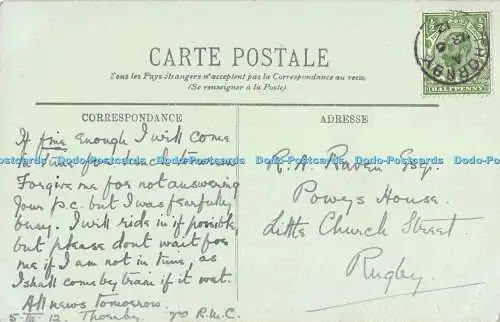 CARTE POSTALE
Tous les Pays étrangers n'acceptent pas la Correspondance au recto.
(Se renseigner à la Poste)
THORNBY
HALFPENNY
CORRESPONDANCE
If fine enough I will come
in time for lunch tomorrow
Forgive me for not answering
your p.c. but I was fearfully
busy. I will ride in if possible,
but please dont wait for
me if I am not in time, as
I shall come by train if it wet.
All news tomorrow.
5-III 12. Thornby. R.W.C.
ADRESSE
R.A. Raven Esq.
Powys House.
Little Church Street.
Rugby.
Dodo-Postcards Dodo-Postcards Dodo-Postcards Dodo-Postcards Dodo-Postcards Dodo-Postcards